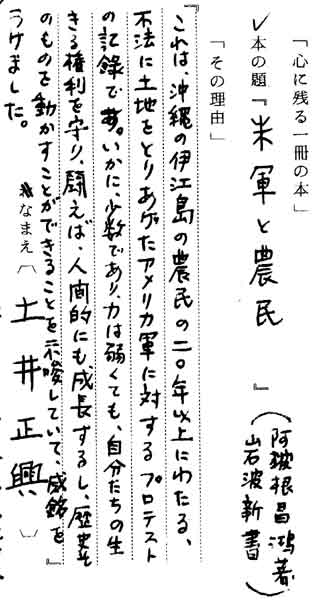 「心に残る一冊の本」
✓本の題『米軍と農民』(阿波根昌鴻著
岩波新書)
「その理由」
『これは、沖縄の伊江島の農民の二〇年以上にわたる、
不法に土地をとりあげたアメリカ軍に対するプロテスト
の記録です。いかに、少数であり、力は弱くても、自分たちの生
きる権利を守り、闘えば、人間的にも成長するし、歴史そ
のものを動かすことができることを示唆していて、感銘を
うけました。』
なまえ〔土井正興〕